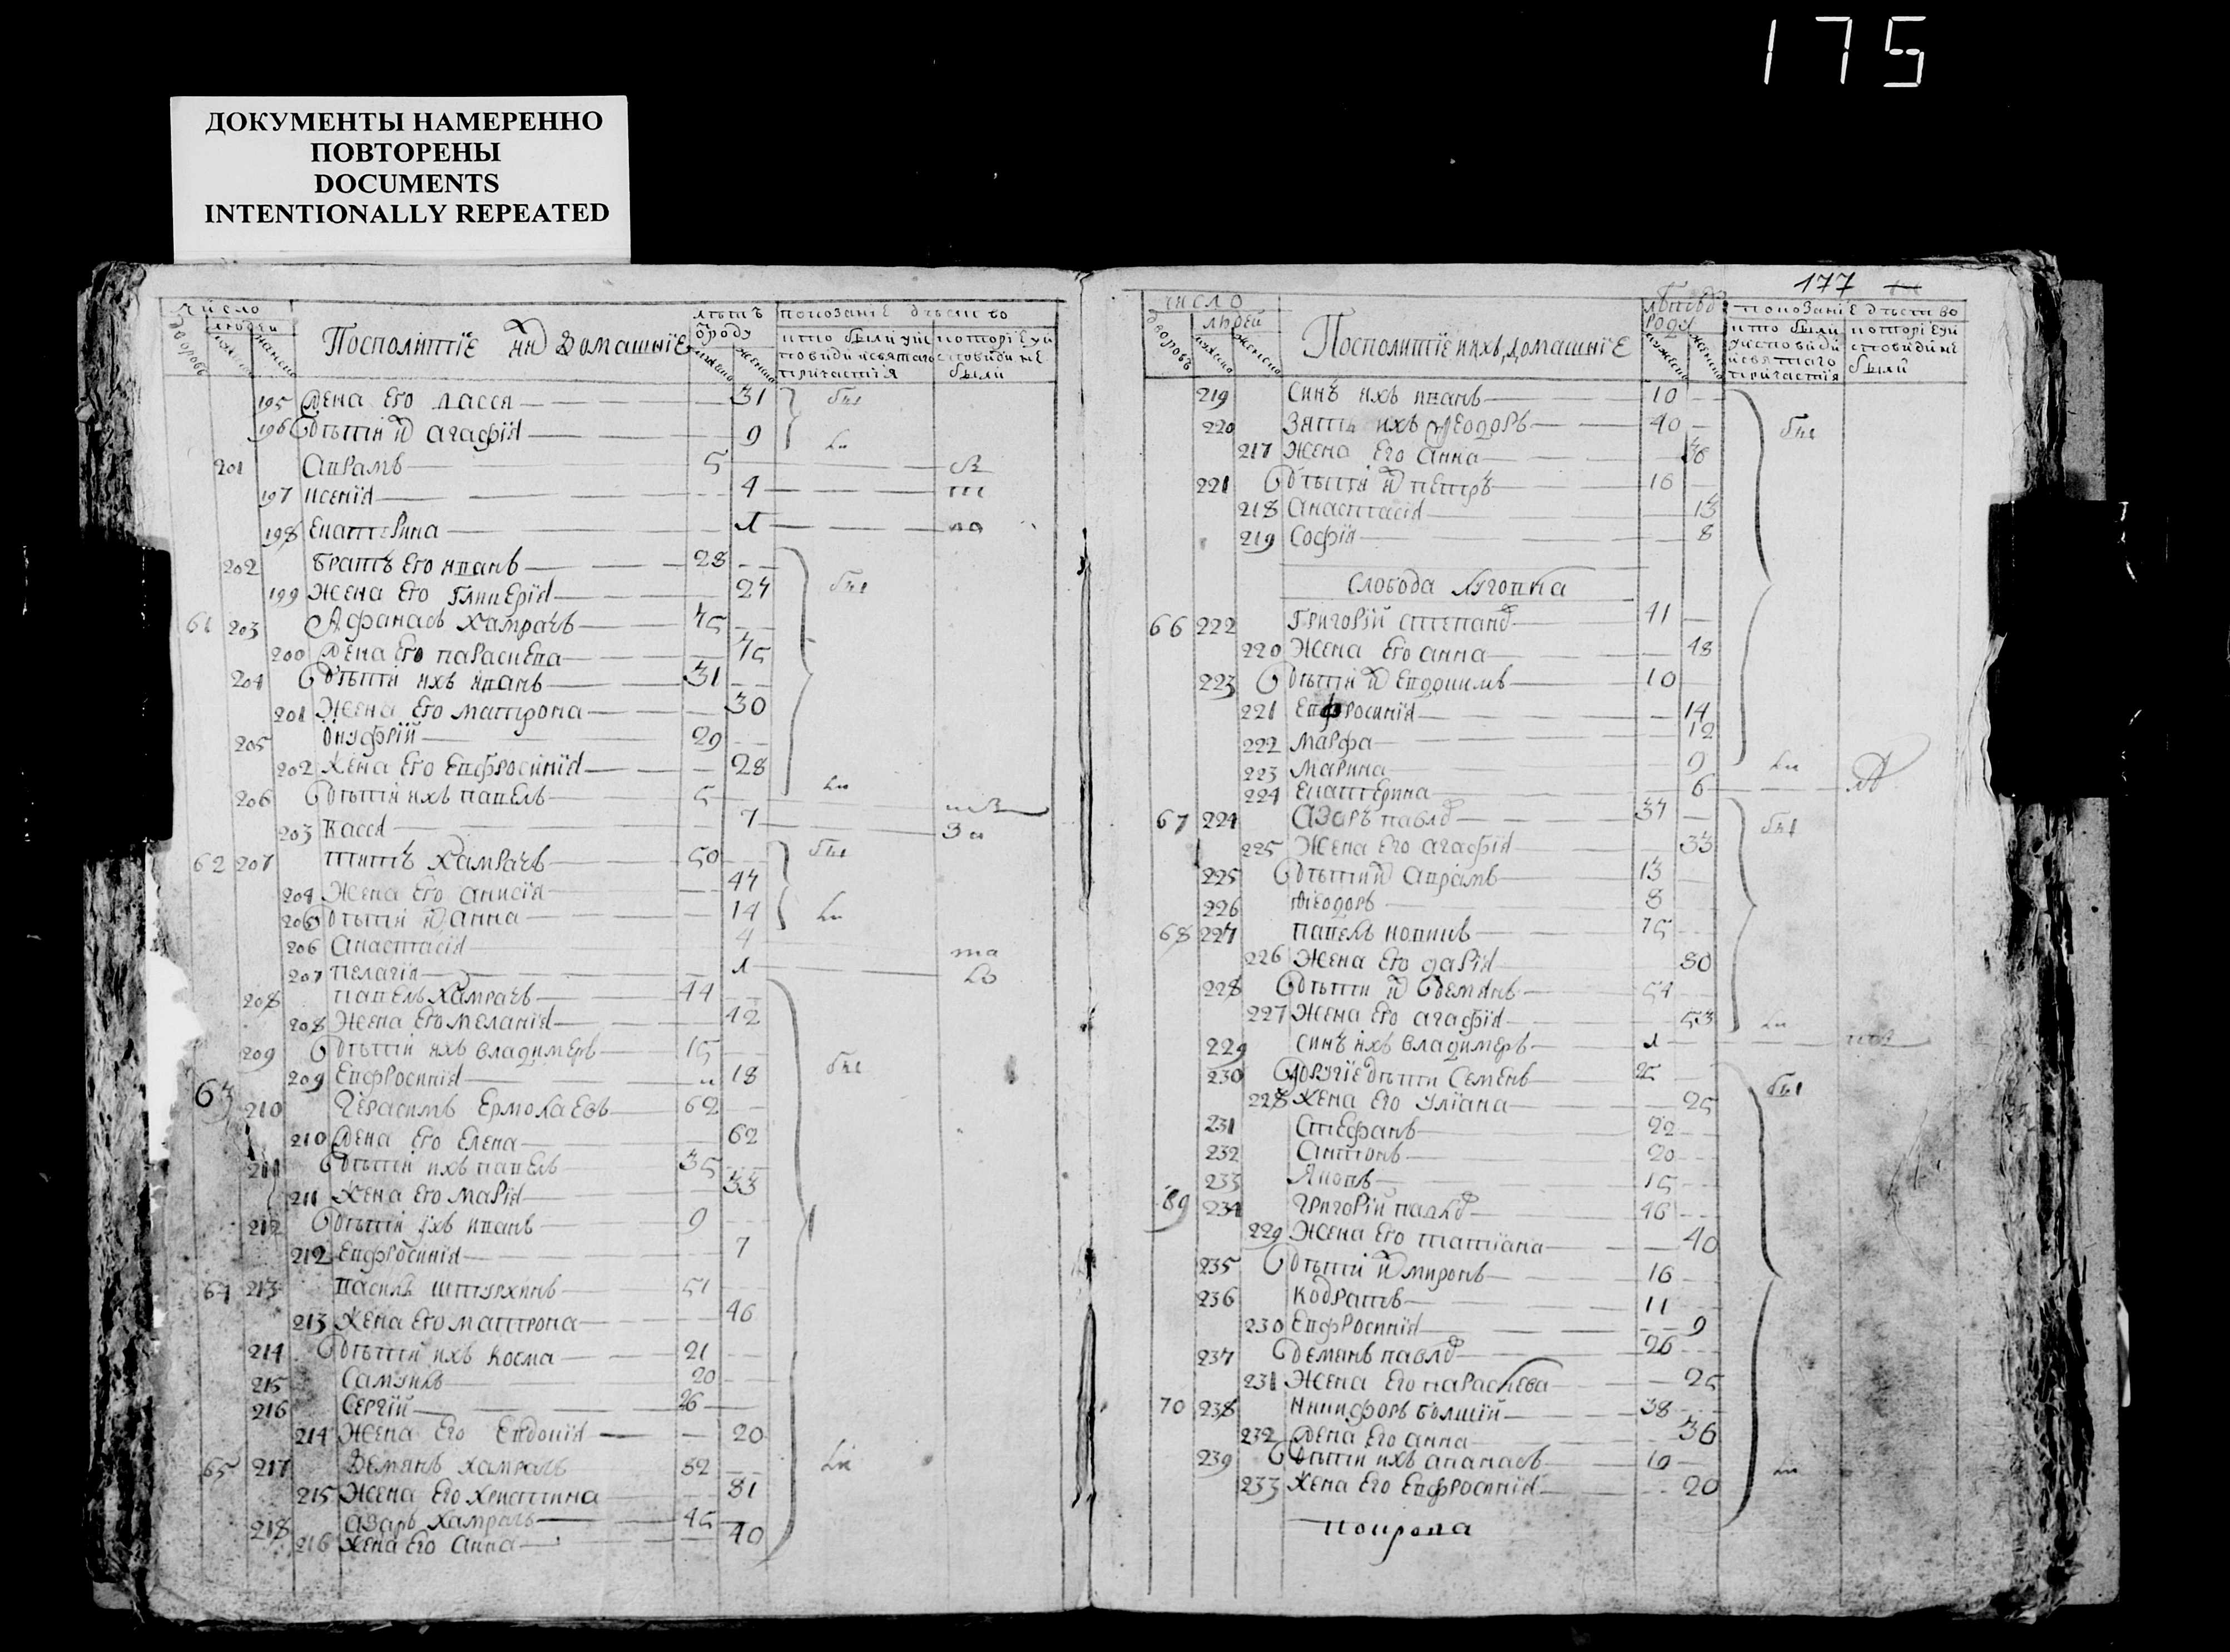 175
ДОКУМЕНТЫ НАМЕРЕННО
ПОВТОРЕНЫ
DOCUMENTS
INTENTIONALLY REPEATED
число
дворовъ
людей
мужска
женска
Посполитїе ихъ домашнїе
лѣтъ
ѿ роду
мужска
женска
показанїе дѣйство
кто были у ис
повѣди и святаго
причастїя
которїе у и
сповѣди не
были
195 Жена его Васся 31 бы
196 Дѣти ихъ Агафїя 9 ли
201 Аврамъ 5
197 Ксенїя 4
198 Екатерина 1
202 Братъ его Иванъ 28
199 Жена его Гликерїя 27 бы
61 203 Афанасъ Хамрачъ 45
200 Жена его Параскева 45
204 Дѣти ихъ Иванъ 31
201 Жена его Матрона 30
205 Онуфрїй 29
202 Жена его Евфросинїя 28
206 Дѣти ихъ Павелъ 5 ли
203 Васса 7 За
62 207 Титъ Хамрачъ 50 бы
204 Жена его Анисїя 47
205 Дѣти ихъ Анна 14 ли
206 Анастасїя 4
207 Пелагїя 1
208 Павелъ Хамрачъ 44
208 Жена его Меланїя 42
209 Дѣти ихъ Владимеръ 15 бы
209 Евфросинїя 18
63 210 Герасимъ Ермолаевъ 62
210 Жена его Елена 62
211 Дѣти ихъ Павелъ 35
211 Жена его Марїя 33
212 Дѣти ихъ Иванъ 9
212 Евфросинїя 7
64 213 Василь Штурхинъ 51
213 Жена его Матрона 46
214 Дѣти ихъ Косма 21
215 Самуилъ 20
216 Сергїй 26
214 Жена его Евдокїя 20
65 217 Демянъ Хамрачъ 82 ли
215 Жена его Христина 81
218 Азаръ Хамрачъ 45
216 Жена его Анна 40
177
число
дворовъ
людей
мужска
женска
Посполитїе ихъ домашнїе
роду
мужска
женска
показанїе дѣйство
кто были
у исповѣди
и святаго
причастїя
которїе у и
сповѣди не
были
219 Синъ ихъ Иванъ 10
220 Зять ихъ Феодоръ 40 бы
217 Жена его Анна 38
221 Дѣти ихъ Петръ 16
218 Анастасїя 13
219 Софїя 8
Слобода Луговка
66 222 Григорїй Степан 41
220 Жена его Анна 48
223 Дѣти ихъ Евдокимъ 10
221 Евфросинїя 14
222 Марфа 12
223 Марина 9 ли
224 Екатерина 6
67 224 Азаръ Павло 37
225 Жена его Агафїя 33 бы
225 Дѣти ихъ Аврамъ 13
226 Феодоръ 8
68 227 Павелъ Новикъ 75
226 Жена его Дарїя 80
228 Дѣти ихъ Демянъ 54
227 Жена его Агафїя 53 ли
229 Синъ ихъ Владимеръ 1
230 Другїе дѣти Семенъ 25 бы
228 Жена его Улїана 25
231 Стефанъ 22
232 Антонъ 20
233 Яковъ 15
89 234 Григорїй Павло 46
229 Жена его Татїана 40
235 Дѣти ихъ Миронъ 16
236 Кодратъ 11
230 Евфросинїя 9
237 Демянъ Павло 26
231 Жена его Параскева 25
70 238 Никифоръ Болший 38
232 Жена его Анна 36
239 Дѣти ихъ Апанасъ 10 ли
233 Жена его Евфросинїя 20